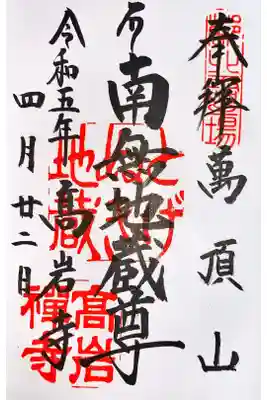 奉拝 萬頂山
南無地蔵尊
高岩寺
令和五年
四月廿二日
とげ
地蔵
高岩
禅寺